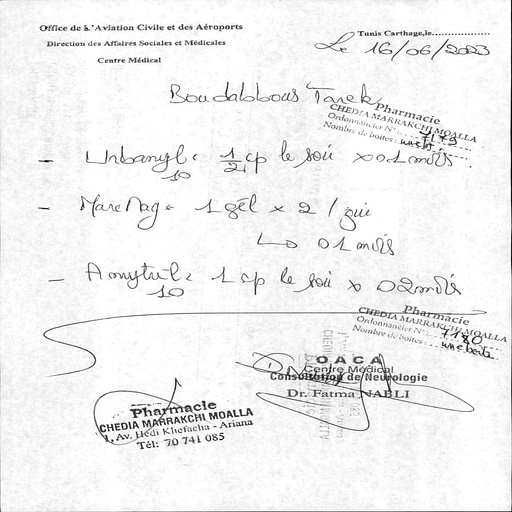 Office de L'Aviation Civile et des Aéroports
Direction des Affaires Sociales et Médicales
Centre Médical
Tunis Carthage,le..................
Le 16/06/2023
Boudabbous Tarek
Pharmacie
CHEDIA MARRAKCHI MOALLA
Ordonnancier N° : 7179
Nombre de boites : une bte
- Urbanyl : 1/2 cp le soir x 01 mois.
10
- Mare Mag : 1 gél x 2 / jour
↳ 01 mois
- Amytril : 1 cp le soir x 02 mois
10
Pharmacie
CHEDIA MARRAKCHI MOALLA
Ordonnancier N° : 7180
Nombre de boites : une boite
O A C A
Centre Médical
Consultation de Neurologie
Dr. Fatma NABLI
Pharmacie
CHEDIA MARRAKCHI MOALLA
1, Av. Hédi Khefacha - Ariana
Tél: 70 741 085